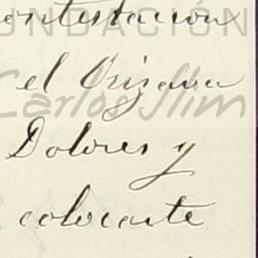 ontestacion
FUNDACIÓN
el Orizava
Carlos Slim
Dolores y
colocarte